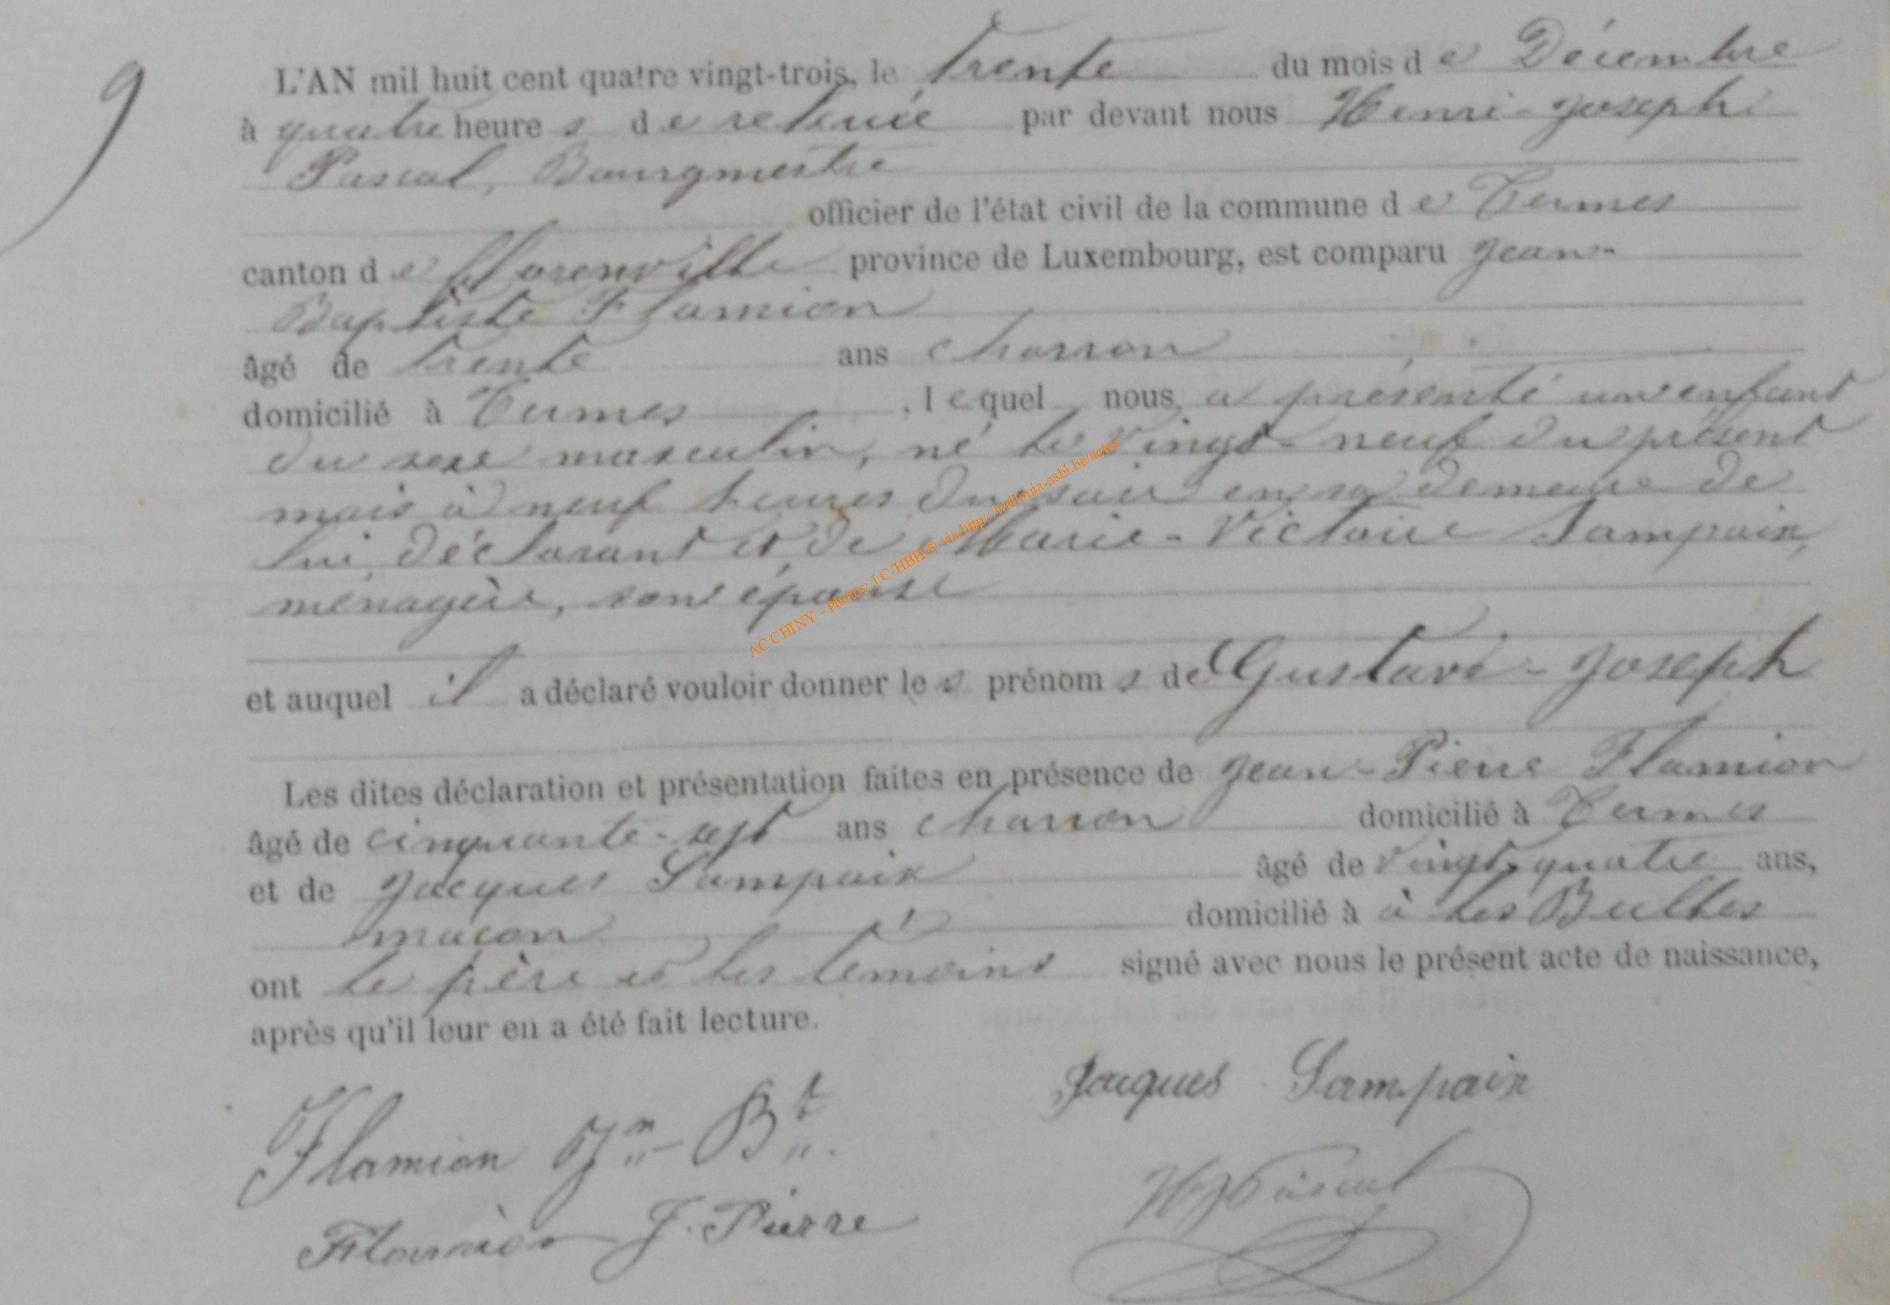 9
L'AN mil huit cent quatre vingt-trois, le trente du mois de Décembre
à quatre heures de relevée par devant nous Henri-Joseph
Pascal, Bourgmestre
officier de l'état civil de la commune de Termes
canton de Florenville province de Luxembourg, est comparu Jean-
Baptiste Flamion
âgé de trente ans charron
domicilié à Termes, lequel nous a présenté un enfant
du sexe masculin, né le vingt-neuf du présent
mois à neuf heures du soir en sa demeure de
lui déclarant et de Marie-Victoire Sampaix,
ménagère, son épouse
et auquel il a déclaré vouloir donner les prénoms de Gustave-Joseph
Les dites déclaration et présentation faites en présence de Jean-Pierre Flamion
âgé de cinquante-sept ans charron domicilié à Termes
et de Jacques Sampaix âgé de vingt-quatre ans,
maçon domicilié à à Les Bulles
ont le père et les témoins signé avec nous le présent acte de naissance,
après qu'il leur en a été fait lecture.
Jacques Sampaix
Flamion Jn-Bt.
HJPascal
Flamion J. Pierre
AC CHINY - Photos: J C HBH @ via http://wallonia-asbl.be/actes